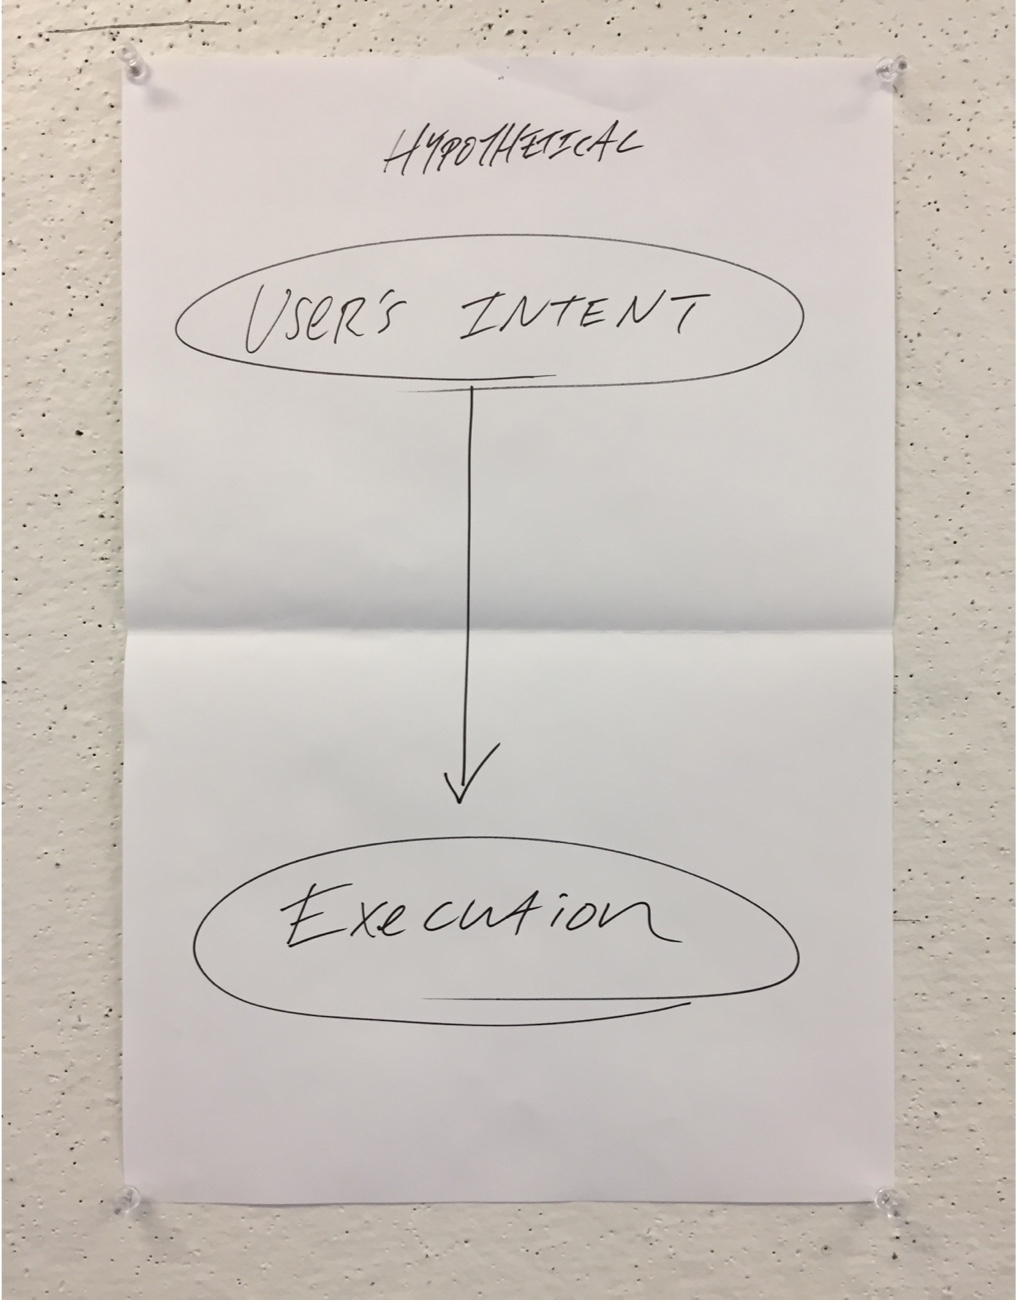 HYPOTHETICAL
USER'S INTENT
Execution